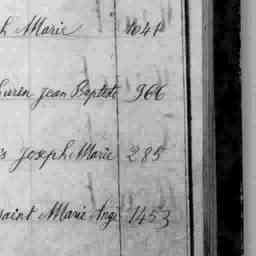 h Marie 1041
hurin Jean Baptiste 966
is Joseph Marie 285
saint Marie Ange 1453